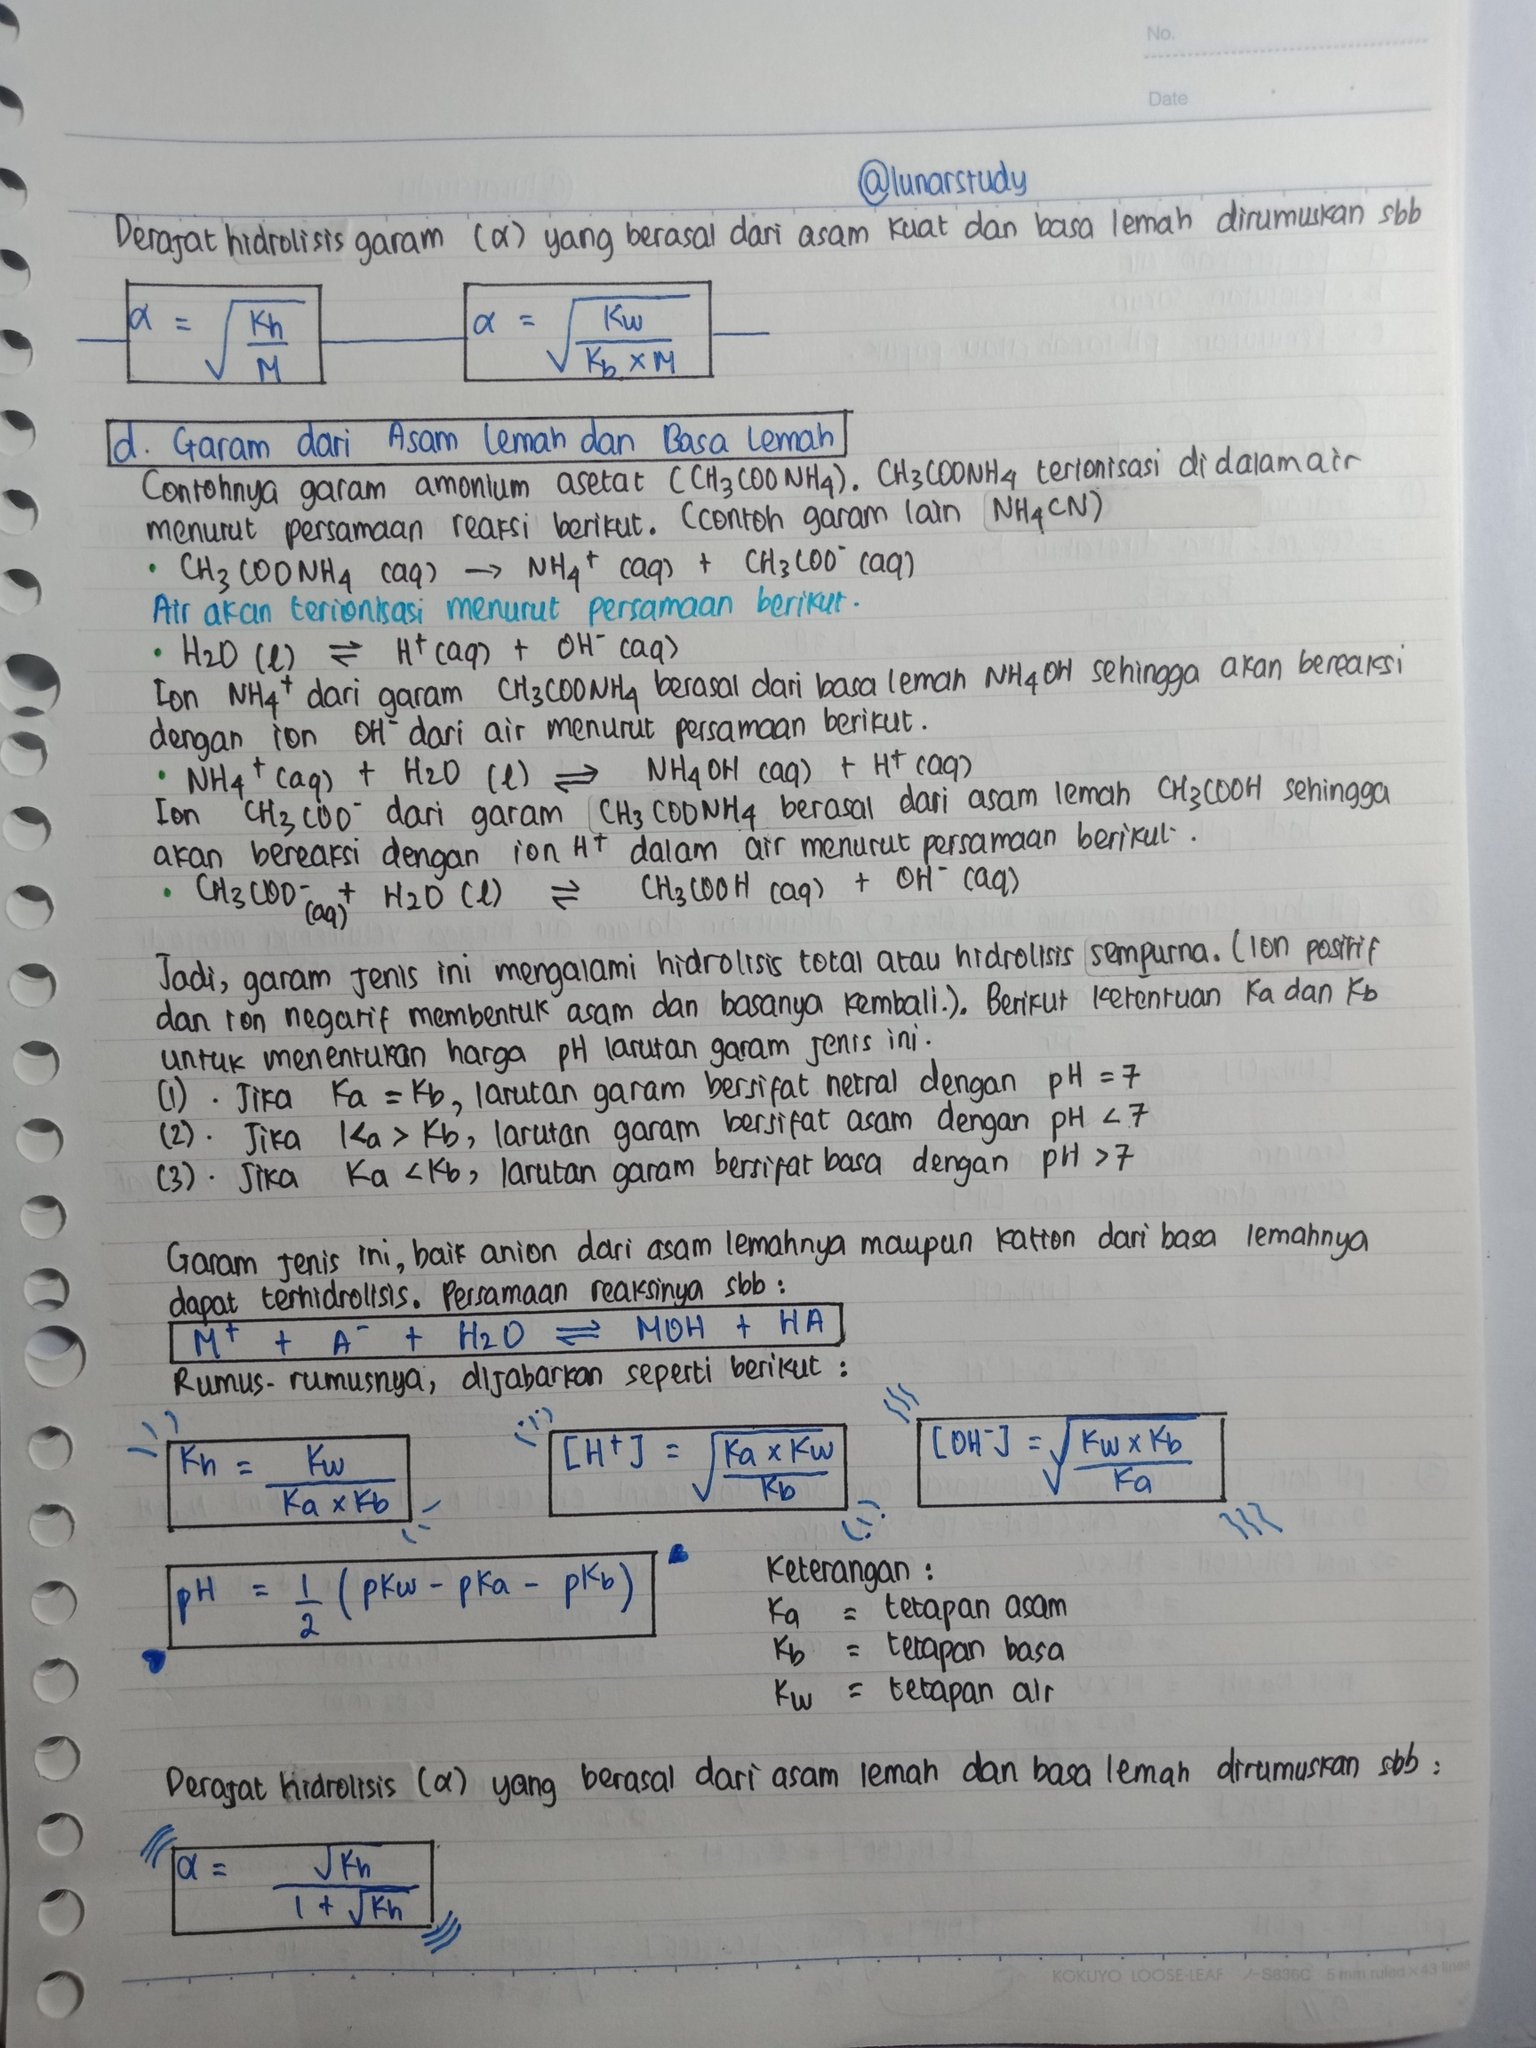 No.
Date
@lunarstudy
Derajat hidrolisis garam (α) yang berasal dari asam kuat dan basa lemah dirumuskan sbb
α = √(Kh / M)   α = √(Kw / Kb × M)
d. Garam dari Asam lemah dan Basa Lemah
Contohnya garam amonium asetat (CH3COONH4). CH3COONH4 terionisasi didalam air
menurut persamaan reaksi berikut. (contoh garam lain NH4CN)
• CH3COONH4 (aq) → NH4⁺ (aq) + CH3COO⁻ (aq)
Air akan terionisasi menurut persamaan berikut.
• H2O (l) ⇌ H⁺ (aq) + OH⁻ (aq)
Ion NH4⁺ dari garam CH3COONH4 berasal dari basa lemah NH4OH sehingga akan bereaksi
dengan ion OH⁻ dari air menurut persamaan berikut.
• NH4⁺ (aq) + H2O (l) ⇌ NH4OH (aq) + H⁺ (aq)
Ion CH3COO⁻ dari garam CH3COONH4 berasal dari asam lemah CH3COOH sehingga
akan bereaksi dengan ion H⁺ dalam air menurut persamaan berikut.
• CH3COO⁻ (aq) + H2O (l) ⇌ CH3COOH (aq) + OH⁻ (aq)
Jadi, garam jenis ini mengalami hidrolisis total atau hidrolisis sempurna. (Ion positif
dan ion negatif membentuk asam dan basanya kembali.). Berikut ketentuan Ka dan Kb
untuk menentukan harga pH larutan garam jenis ini.
(1) . Jika Ka = Kb, larutan garam bersifat netral dengan pH = 7
(2) . Jika Ka > Kb, larutan garam bersifat asam dengan pH < 7
(3) . Jika Ka < Kb, larutan garam bersifat basa dengan pH > 7
Garam jenis ini, baik anion dari asam lemahnya maupun kation dari basa lemahnya
dapat terhidrolisis. Persamaan reaksinya sbb :
M⁺ + A⁻ + H2O ⇌ MOH + HA
Rumus-rumusnya, dijabarkan seperti berikut :
Kh = Kw / Ka × Kb   [H⁺] = √(Ka × Kw / Kb)   [OH⁻] = √(Kw × Kb / Ka)
pH = 1/2 (pKw - pKa - pKb)
Keterangan :
Ka = tetapan asam
Kb = tetapan basa
Kw = tetapan air
Derajat hidrolisis (α) yang berasal dari asam lemah dan basa lemah dirumuskan sbb :
α = √Kh / 1 + √Kh
KOKUYO LOOSE-LEAF ノ-S836C 5 mm ruled × 43 lines